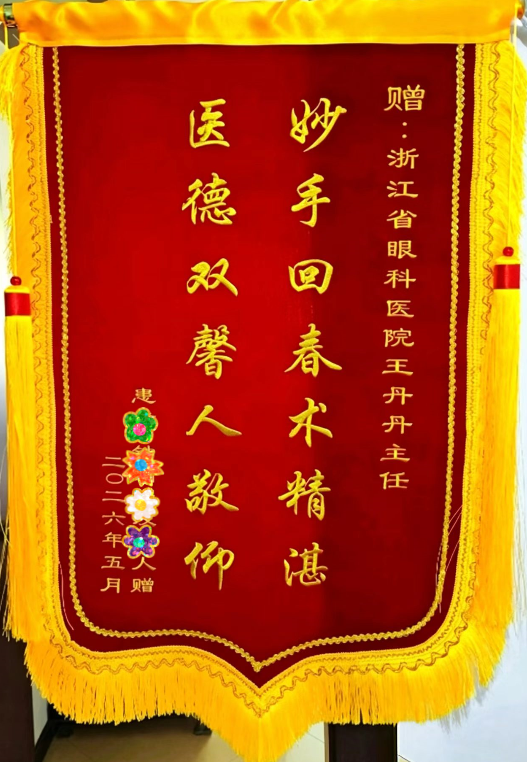 赠：浙江省眼科医院王丹丹主任
妙手回春术精湛
医德双馨人敬仰
患 人赠
二〇二六年五月